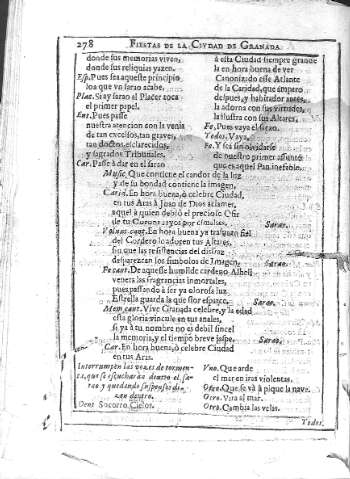 278 FIESTAS DE LA CIVDAD DE GRANADA.
donde sus memorias viven,
donde sus reliquias yazen.
Esp. Pues sea aqueste principio
loa que vn sarao acabe.
Plac. Si ay sarao el Plazer toca
el primer papel.
Ent. Pues passe
nuestra atencion con la venia
de tan excelsos, tan graves,
tan doctos, esclarecidos,
y sagrados Tribunales.
Car. Passe à dar en el sarao
à esta Ciudad siempre grande
la en hora buena de ver
Canonizado esse Atlante
de la Caridad, que amparo
despues, y habitador antes,
la adorna con sus virtudes,
la ilustra con sus Altares.
Fe. Pues vaya el sarao.
Todos. Vaya.
Fe. Y sea sin olvidarse
de nuestro primer assunto
que es aquel Pan inefable.
Music. Que contiene el candor de la luz
y de su bondad contiene la imagen.
Carid. En hora buena, ò celebre Ciudad,
en tus Aras à Juan de Dios aclames,
aquel à quien debiò el precioso Ofir
de tu Corona rayos por esmaltes. Sarao.
Volunt. cant. En hora buena ya trasunto fiel
del Cordero le adoren tus Altares,
sin que las resistencias del disfraz
desparezcan los simbolos de Imagen. Sarao.
Fe cant. De aquesse humilde cardeno Alheli
venera las fragrancias inmortales,
pues passando à ser ya olorosa luz
Estrella guarda la que flor esparce. Sarao.
Mem. cant. Vive Granada celebre, y la edad
esta gloria vincule en tus anales,
si ya à tu nombre no es debil sincel
la memoria, y el tiempo breve jaspe. Sarao.
Car. En hora buena, ò celebre Ciudad
en tus Aras.
Interrumpen las vozes de tormenta,
que se escucharàn dentro el sarao
y quedando suspensos dizen
dentro.
Dent. Socorro Cielos.
Vno. Que arde
el mar en iras violentas.
Otro. Que se và à pique la nave.
Otro. Vira al mar.
Otro. Cambia las velas.
Todos.